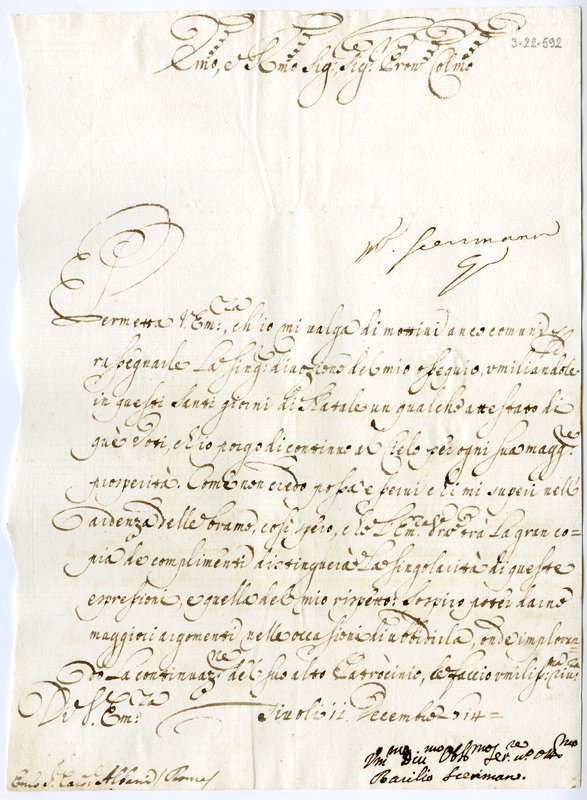 3-22-592
Emo, e Rmo Sig:, Sig:r Pron Colmo
Mr. Sceriman
Permetta V. Em:za, ch'io mi valga di mottivi anco comuni p
rassegnarle la sing: divozione del mio ossequio, umiliandole
in questi Santi giorni di Natale un qualche attestato di
què Voti, ch'io porgo di continuo al Cielo per ogni sua magg:re
prosperità. Come non credo possa esservi chi mi superi nell'
ardenza delle bramo, così spero, che l'Em:za Vra trà la gran co=
pia de complimenti distinguerà la singolarità di queste
espressioni, e quella del mio rispetto: Sospiro poter darne
maggiori argomenti nelle occasioni d'ubbidirla, onde imploran=
do la continuaz:ne del suo alto Patrocinio, le faccio umiliss:ma riv:za
Di V. Em:za Tivoli 12. Decembre 714=
Vm:mo Div:mo Obb:mo Ser:re
Basilio Sceriman.
Emo S. Card. Albani / Roma